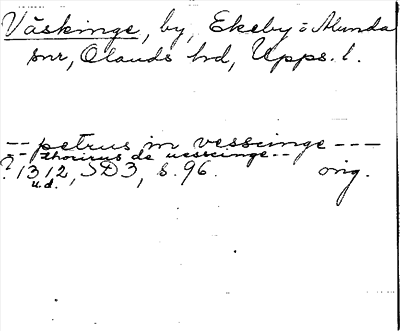 Väskinge, by, Ekeby o Alunda
snr, Olands hd, Upps. l.
-- petrus in vesscinge ---
-- thorirus de uesscinge --
? 1312, SD3, s. 96. orig.
u.d.